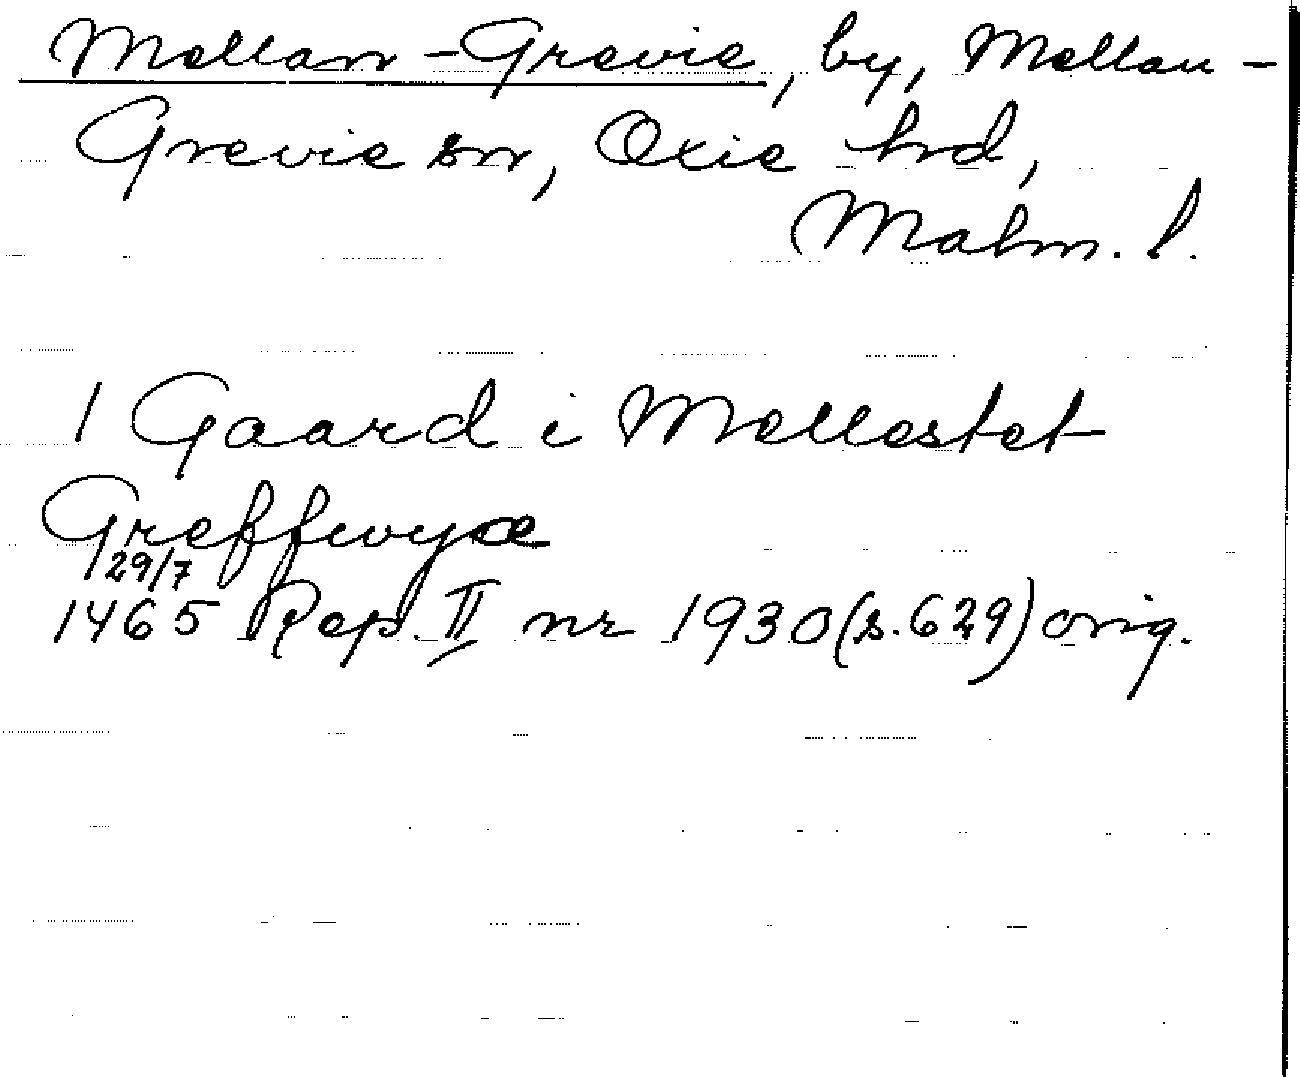 Mellan-Grevie, by, Mellan-
Grevie sn, Oxie hd,
Malm. l.
1 Gaard i Mellestet
Greffwyæ
29/7
1465 Rep. II nr 1930 (s. 629) orig.